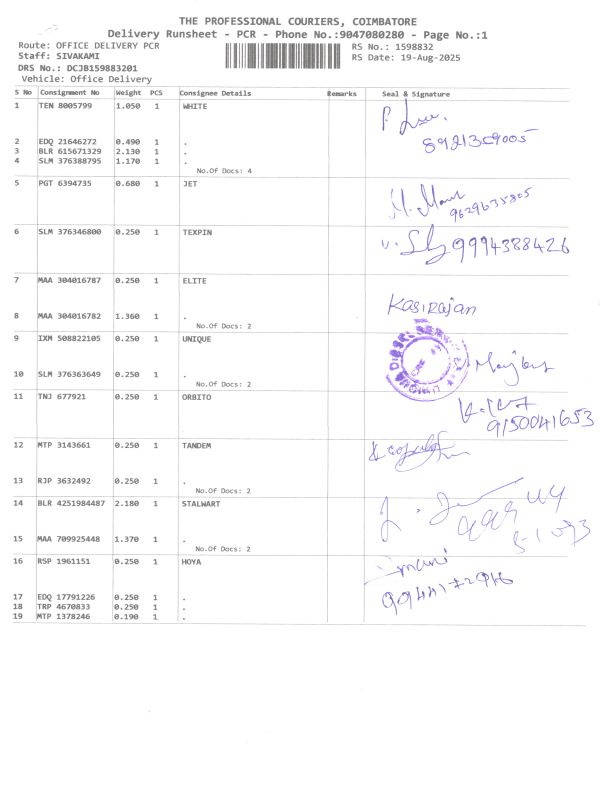 THE PROFESSIONAL COURIERS, COIMBATORE
Delivery Runsheet - PCR - Phone No.:9047080280 - Page No.:1
Route: OFFICE DELIVERY PCR RS No.: 1598832
Staff: SIVAKAMI RS Date: 19-Aug-2025
DRS No.: DCJB159883201
Vehicle: Office Delivery
S No Consignment No Weight PCS Consignee Details Remarks Seal & Signature
1 TEN 8005799 1.050 1 WHITE
2 EDQ 21646272 0.490 1 .
3 BLR 615671329 2.130 1 .
4 SLM 376388795 1.170 1 .
No.Of Docs: 4
5 PGT 6394735 0.680 1 JET
9629635805
6 SLM 376346800 0.250 1 TEXPIN
9994388426
7 MAA 304016787 0.250 1 ELITE
KASIRAjan
8 MAA 304016782 1.360 1 .
No.Of Docs: 2
9 IXM 508822105 0.250 1 UNIQUE
10 SLM 376363649 0.250 1 .
No.Of Docs: 2
11 TNJ 677921 0.250 1 ORBITO
9150041653
12 MTP 3143661 0.250 1 TANDEM
13 RJP 3632492 0.250 1 .
No.Of Docs: 2
14 BLR 4251984487 2.180 1 STALWART
15 MAA 709925448 1.370 1 .
No.Of Docs: 2
16 RSP 1961151 0.250 1 HOYA
17 EDQ 17791226 0.250 1 .
18 TRP 4670833 0.250 1 .
19 MTP 1378246 0.190 1 .